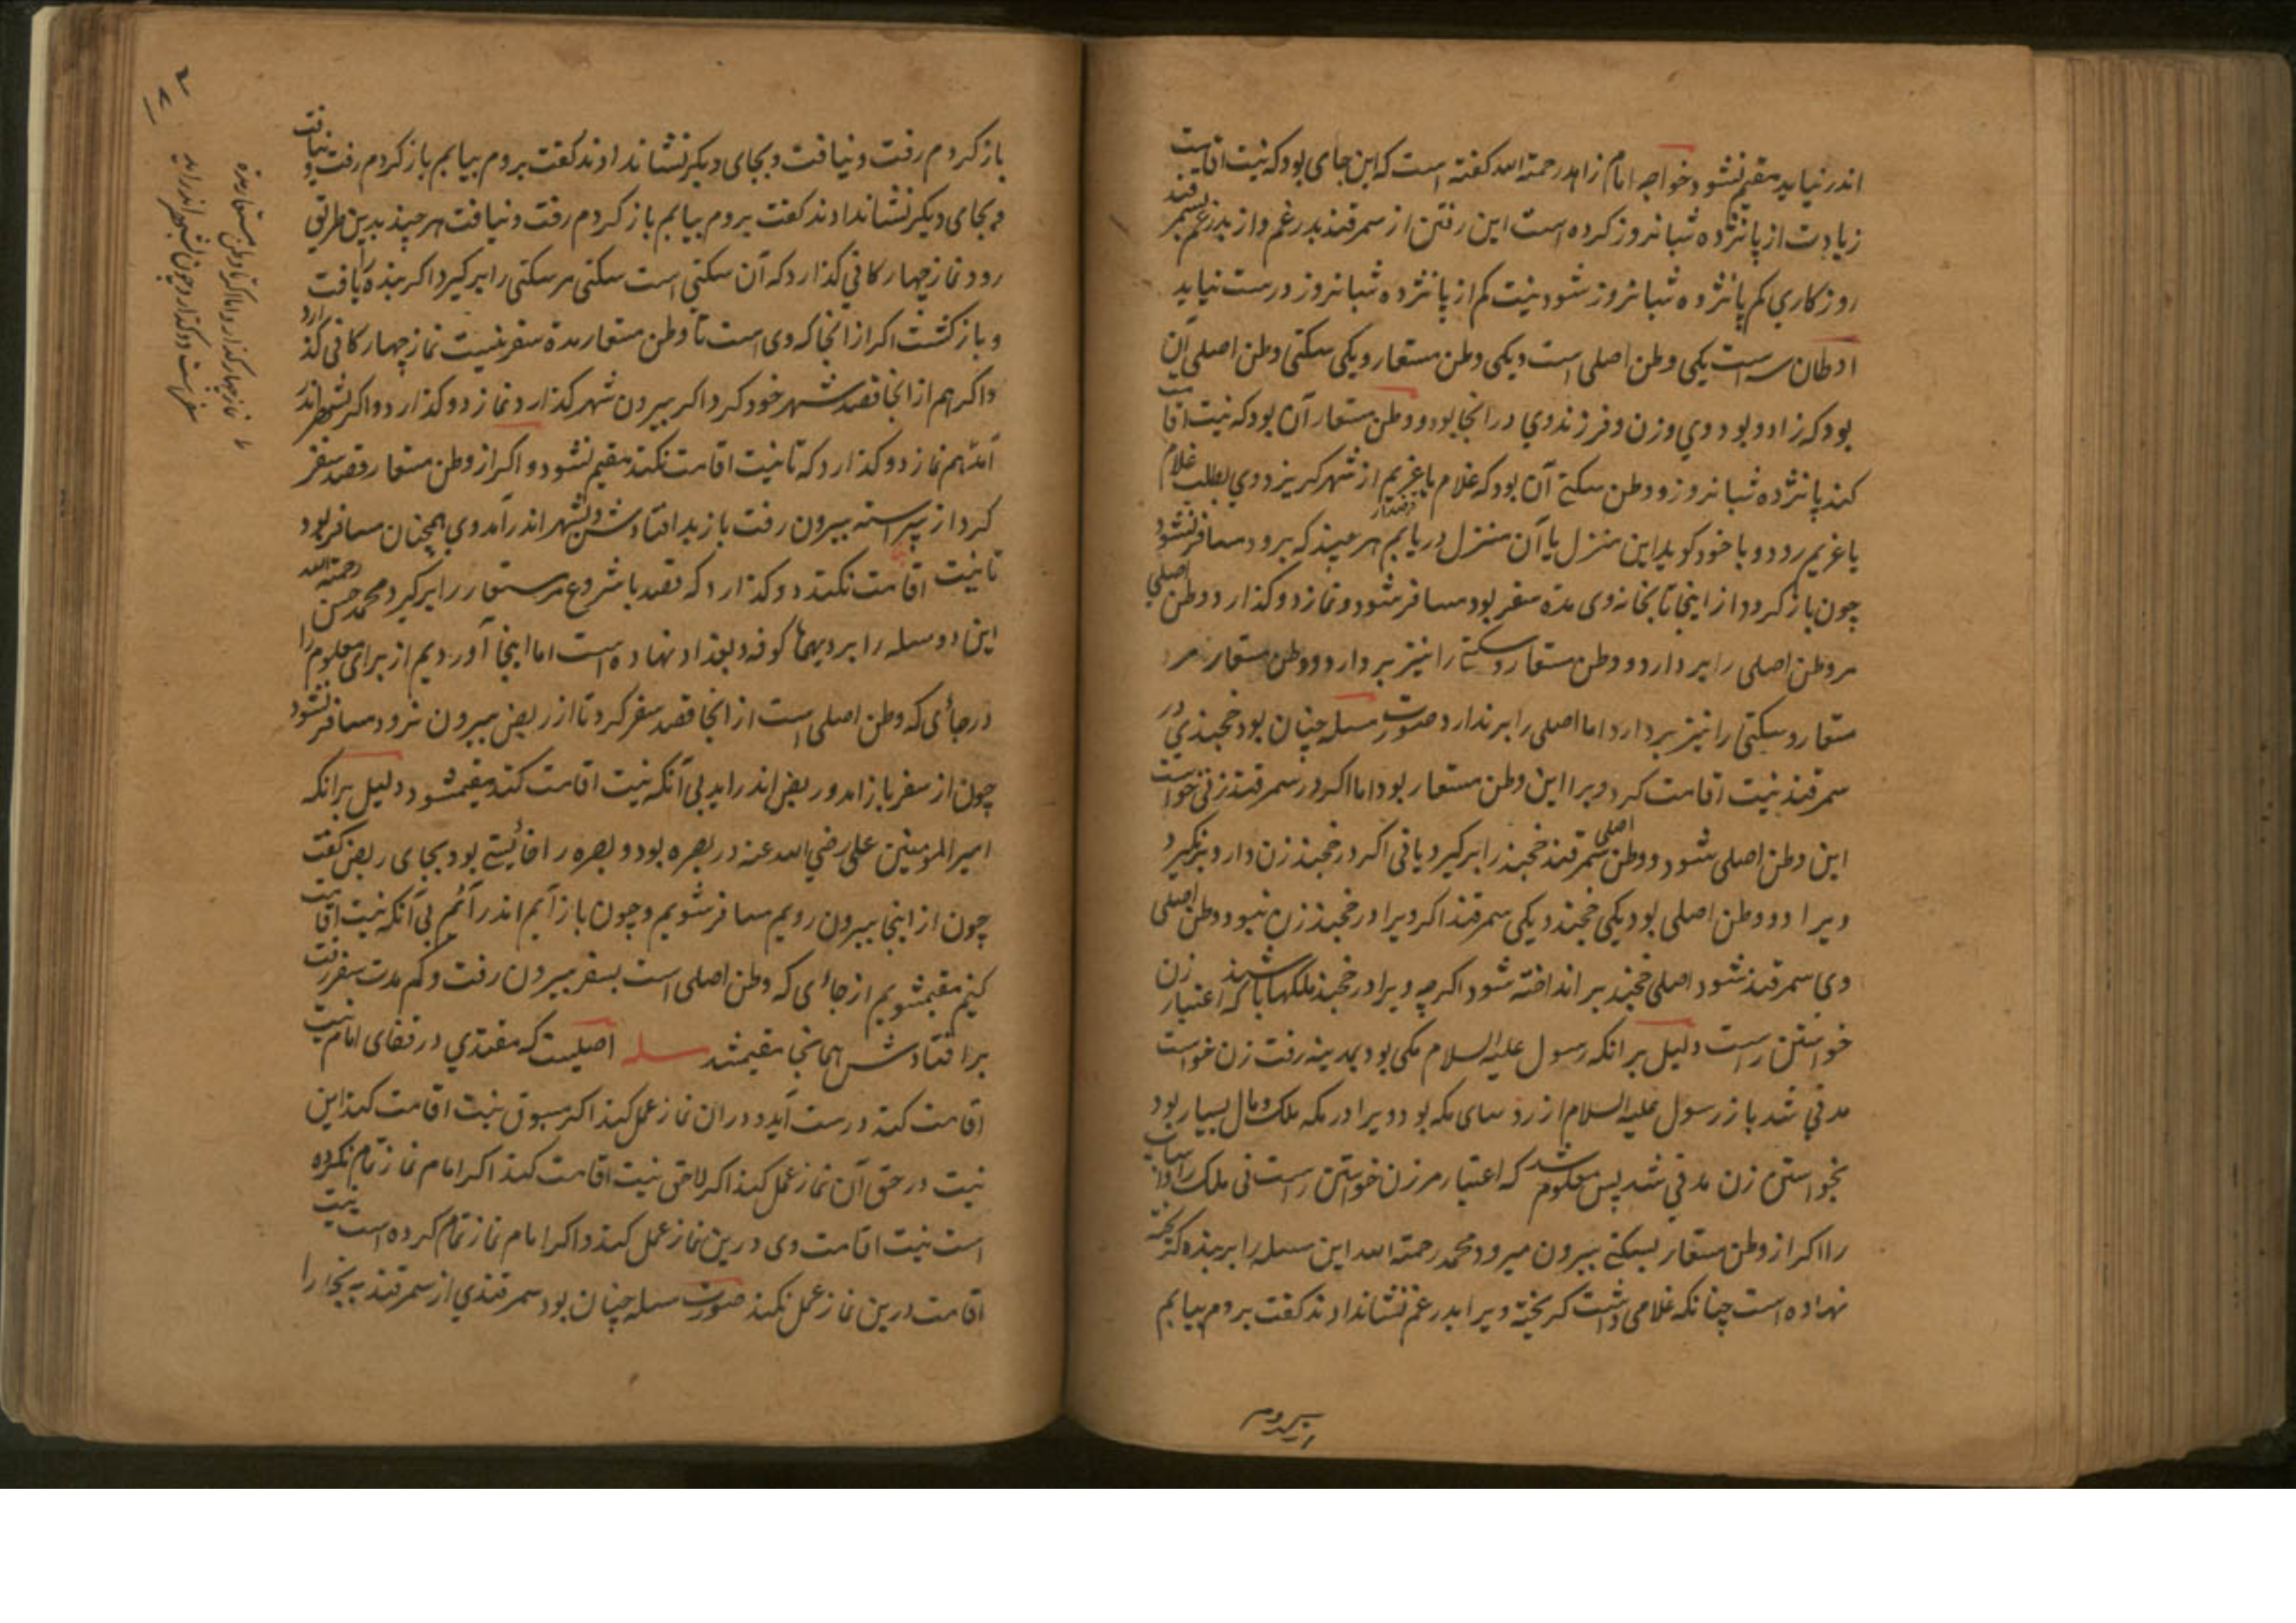 اندر نیاید مقیم نشود و خواجه امام زاهد رحمة الله گفته است که این جای بود که نیت اقامت
زیادت از پانزده شبانروز کرده است این رفتن از سمرقند بدرغم و از بدرغم بسمرقند
روزکاری کم پانزده شبانروز شود نیت کم از پانزده شبانروز درست نیاید
اوطان سه است یکی وطن اصلی است و یکی وطن مستعار و یکی سکنی وطن اصلی آن
بود که زاده بود وی و زن و فرزند وی در انجا بود و وطن مستعار آن بود که نیت اقامت
کند پانزده شبانروز و وطن سکنی آن بود که غلام یا غریم از شهر کریزد و وی بطلب غلام
یا غریم رود و با خود کوید این منزل یا آن منزل دریابم هر چند که برود مسافر نشود
چون باز کردد از اینجا تا بخانه وی مدة سفر بود مسافر شود و نماز دو کذارد و وطن اصلی
مر وطن اصلی را بردارد و وطن مستعار و سکنی را نیز بردارد و وطن مستعار مر
مستعار و سکنی را نیز بردارد اما اصلی را برندارد و صورت مسله چنان بود خجندی در
سمرقند نیت اقامت کرد ویرا این وطن مستعار بود اما اکر در سمرقند زنی خواست
این وطن اصلی شود و وطن اصلی سمرقند خجند را برکیرد یا نی اکر در خجند زن دارد برنکیرد
ویرا دو وطن اصلی بود یکی خجند و یکی سمرقند اکر ویرا در خجند زن نبود وطن اصلی
وی سمرقند شود اصلی خجند بر انداخته شود اکرچه ویرا در خجند ملکها باشد که اعتبار زن
خواستن راست دلیل بر انکه رسول علیه السلام مکی بود بمدینه رفت زن خواست
مدنی شد باز رسول علیه السلام از روسای مکه بود و ویرا در مکه ملک و مال بسیار بود
بخواستن زن مدنی شد پس معلوم شد که اعتبار مر زن خواستن راست نی ملک و اسباب
را اکر از وطن مستعار بسکنی بیرون میرود محمد رحمة الله این مسله را بر بنده کریخته
نهاده است چنانکه غلامی داشت کریخته ویرا بدرغم نشان دادند کفت بروم بیابم
باز کردم رفت و نیافت و بجای دیکر نشان دادند کفت بروم بیابم باز کردم رفت و نیافت
و بجای دیکر نشان دادند کفت بروم بیابم باز کردم رفت و نیافت هر چند بدین طریق
رود نماز چهارکانی کذارد که آن سکنی است سکنی مر سکنی را برکیرد اکر بنده را یافت
و باز کشت اکر از انجا که وی است تا وطن مستعار مدة سفر نیست نماز چهارکانی کذارد
و اکر هم از انجا قصد شهر خود کرد اکر بیرون شهر کذارد نماز دو کذارد و اکر بشهر اندر
آمد هم نماز دو کذارد که تا نیت اقامت نکند مقیم نشود و اکر از وطن مستعار قصد سفر
کرد از پیراسته بیرون رفت باز بد افتادش و بشهر اندر آمد وی همچنان مسافر بود
تا نیت اقامت نکند دو کذارد که قصد با شروع مر مستعار را برکیرد محمد حسن رحمة الله
این دو مسله را بر دیهها کوفه و بغداد نهاده است اما اینجا آوردیم از برای معلوم را
در جائی که وطن اصلی است از انجا قصد سفر کرد تا از ربض بیرون نرود مسافر نشود
چون از سفر باز امد و ربض اندر اید بی آنکه نیت اقامت کند مقیم شود دلیل بر انکه
امیر المومنین علی رضی الله عنه در بصره بود و بصره را خائیستی بود بجای ربض کفت
چون از اینجا بیرون رویم مسافر شویم و چون باز آیم اندر آئیم بی آنکه نیت اقامت
کنیم مقیم شویم از جائی که وطن اصلی است بسفر بیرون رفت و کم مدت سفر رفت
بر افتادش همانجا مقیم شد مسله اصلیست که مقتدی در قفای امام نیت
اقامت کند درست آید و در ان نماز عمل کند اکر مسبوق نیت اقامت کند این
نیت در حق آن نماز عمل کند اکر لاحق نیت اقامت کند اکر امام نماز تمام نکرده
است نیت اقامت وی درین نماز عمل کند و اکر امام نماز تمام کرده است نیت
اقامت درین نماز عمل نکند صورت مسله چنان بود سمرقندی از سمرقند به بخارا
نماز چهار کذارد اما اکر تا وطن مستعار مدة
سفر هست دو کذارد چون بشهر اندر اید